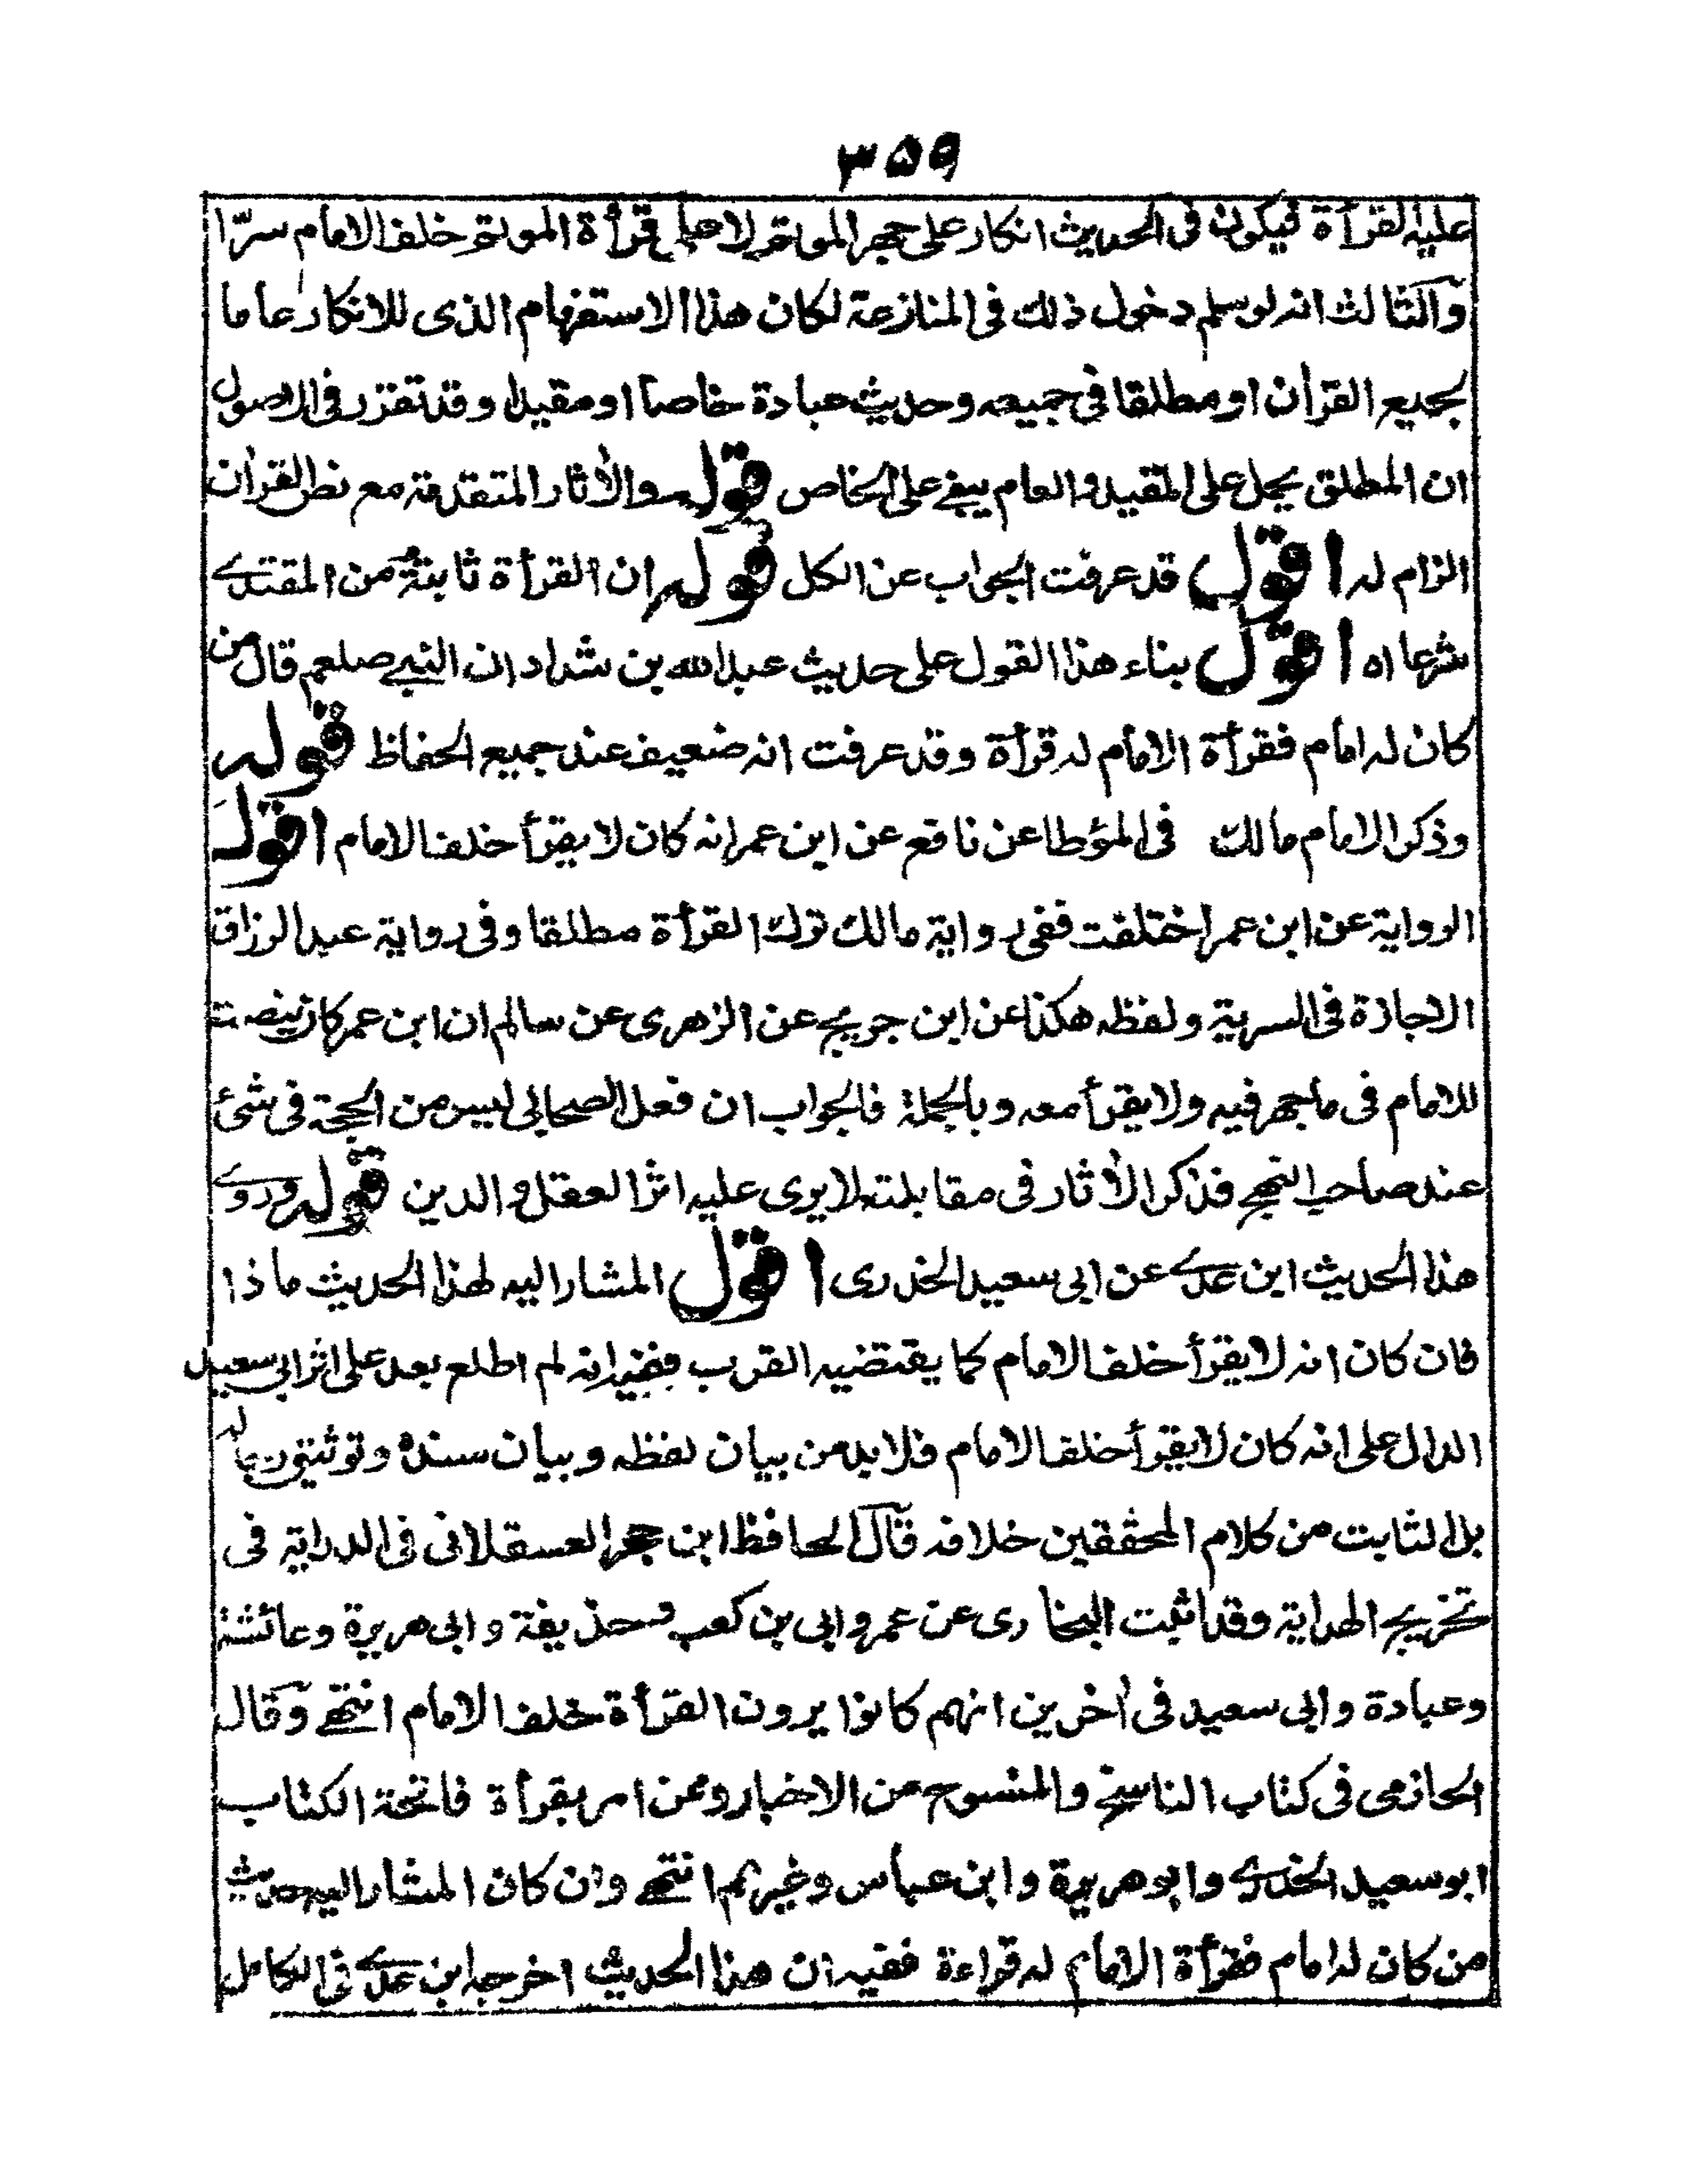 ٣٥٩
عليه القرأة فيكون فى الحديث انكار على جهر الموتم لا على قرأة الموتم خلف الامام سرّا
وآلثالث انه لو سلم دخول ذلك فى المنازعة لكان هذا الاستفهام الذى للانكار عاما
بجميع القرأن او مطلقا فى جميعه وحديث عبادة خاصا او مقيدا وقد تقرر فى الاصول
ان المطلق يحمل على المقيد والعام يبنى على الخاص قوله والأثار المتقدمة مع نص القرأن
الزام له اقول قد عرفت الجواب عن الكل قوله ان القرأة ثابتة من المقتدى
شرعا اه اقول بناء هذا القول على حديث عبد الله بن شداد ان النبى صلعم قال من
كان له امام فقرأة الامام له قرأة وقد عرفت انه ضعيف عند جميع الحفاظ قوله
وذكر الامام مالك فى المؤطا عن نافع عن ابن عمر انه كان لا يقرأ خلف الامام اقول
الرواية عن ابن عمر اختلفت ففى رواية مالك ترك القرأة مطلقا وفى رواية عبد الرزاق
الاجازة فى السرية ولفظه هكذا عن ابن جريج عن الزهرى عن سالم ان ابن عمر كان ينصت
للامام فى ما يجهر فيه ولا يقرأ معه وبالجملة فالجواب ان فعل الصحابى ليس من الحجة فى شئ
عند صاحب النهج فذكر الأثار فى مقابلته لا يرى عليه اثر العقل والدين قوله وروى
هذا الحديث ابن عدى عن ابى سعيد الخدرى اقول المشار اليه لهذا الحديث ماذا
فان كان انه لا يقرأ خلف الامام كما يقتضيه القرب ففيه انه لم اطلع بعد على اثر ابى سعيد
الدال على انه كان لا يقرأ خلف الامام فلا بد من بيان لفظه وبيان سنده وتوثيق رجاله
بل الثابت من كلام المحققين خلافه قآل الحافظ ابن حجر العسقلانى فى الدراية فى
تخريج الهداية وقد اثبت البخارى عن عمر وابى بن كعب وحذيفة وابى هريرة وعائشة
وعبادة وابى سعيد فى أخرين انهم كانوا يرون القرأة خلف الامام انتهى وقآل
الحازمى فى كتاب الناسخ والمنسوخ من الاخبار وممن امر بقرأة فاتحة الكتاب
ابو سعيد الخدرى وابو هريرة وابن عباس وغيرهم انتهى وان كان المشار اليه حديث
من كان له امام فقرأة الامام له قراءة ففيه ان هذا الحديث اخرجه ابن عدى فى الكامل